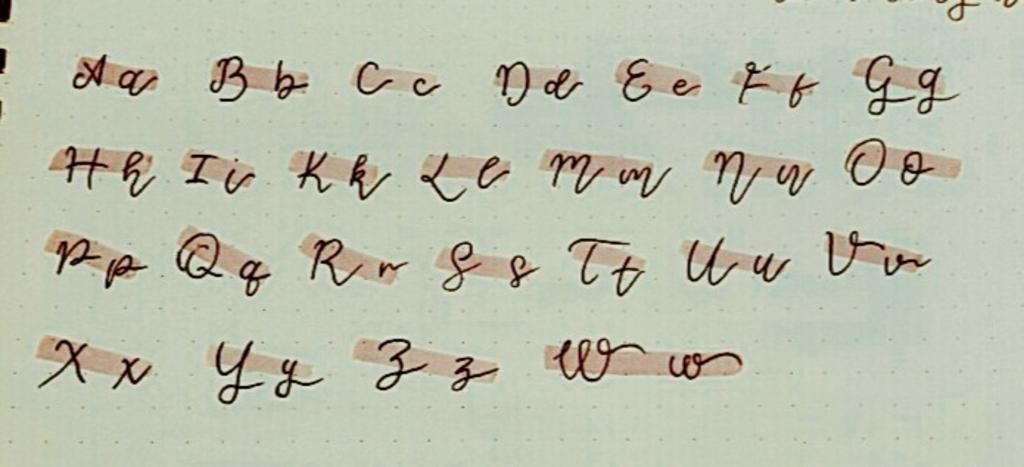 Aa Bb Cc Dd Ee Ff Gg
Hh Ii Kk Ll Mm Nn Oo
Pp Qq Rr Ss Tt Uu Vv
Xx Yy Zz Ww